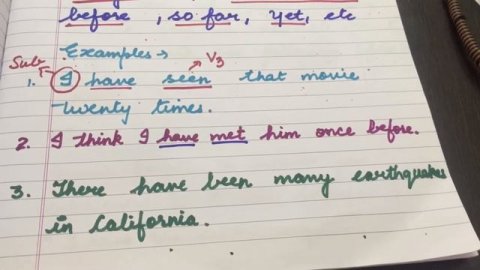 before, so far, yet, etc
Examples →
Sub V3
1. I have seen that movie
twenty times.
2. I think I have met him once before.
3. There have been many earthquakes
in California.